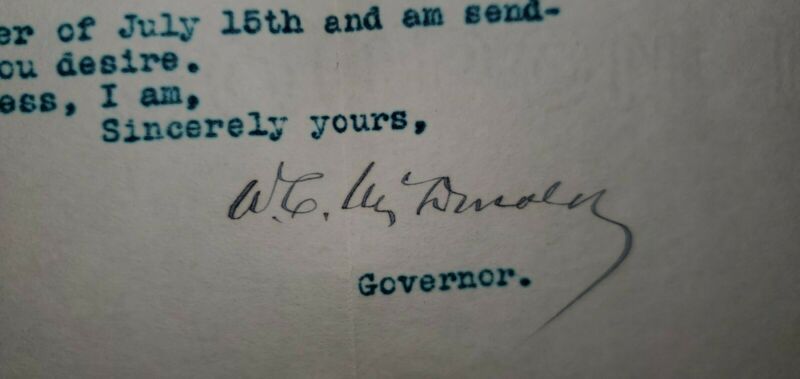 er of July 15th and am send-
ou desire.
ess, I am,
Sincerely yours,
W.C. McDonald
Governor.